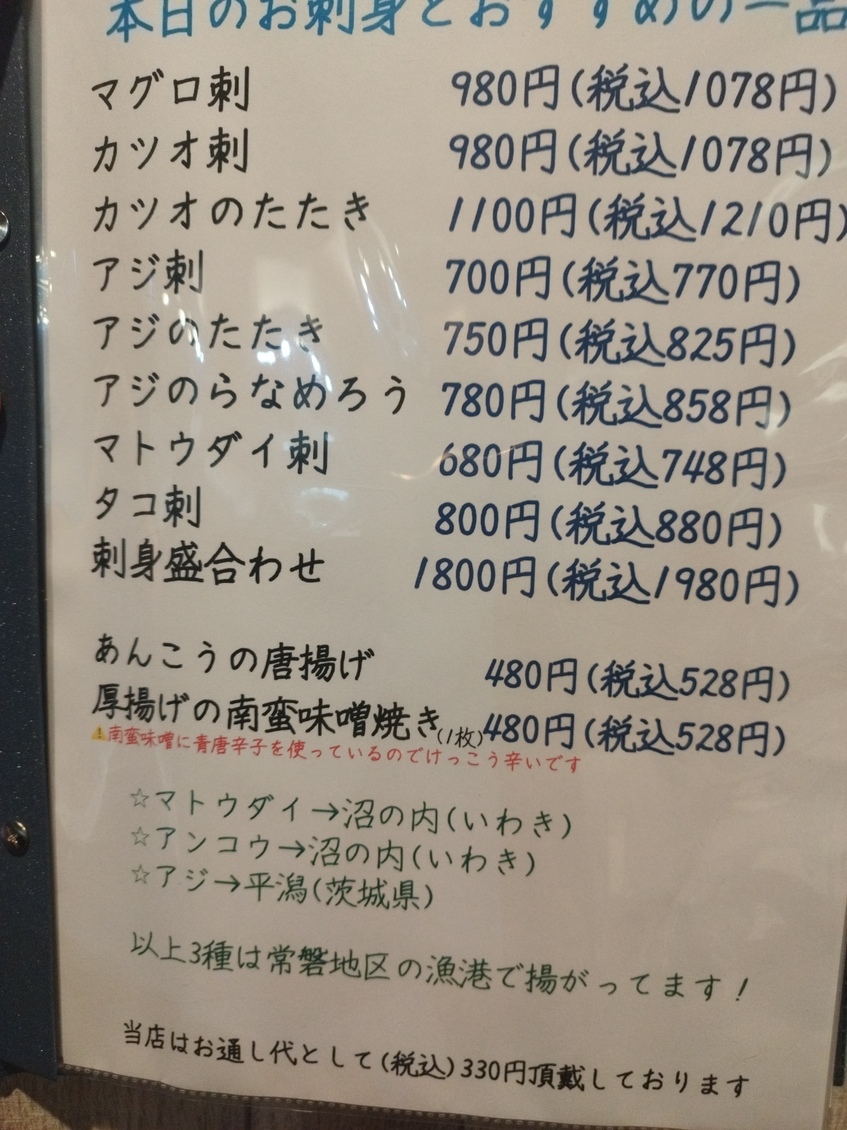 本日のお刺身とおすすめの一品
マグロ刺 980円(税込1078円)
カツオ刺 980円(税込1078円)
カツオのたたき 1100円(税込1210円)
アジ刺 700円(税込770円)
アジのたたき 750円(税込825円)
アジのらなめろう 780円(税込858円)
マトウダイ刺 680円(税込748円)
タコ刺 800円(税込880円)
刺身盛合わせ 1800円(税込1980円)
あんこうの唐揚げ 480円(税込528円)
厚揚げの南蛮味噌焼き(1枚) 480円(税込528円)
⚠南蛮味噌に青唐辛子を使っているのでけっこう辛いです
☆マトウダイ→沼の内(いわき)
☆アンコウ→沼の内(いわき)
☆アジ→平潟(茨城県)
以上3種は常磐地区の漁港で揚がってます!
当店はお通し代として(税込)330円頂戴しております